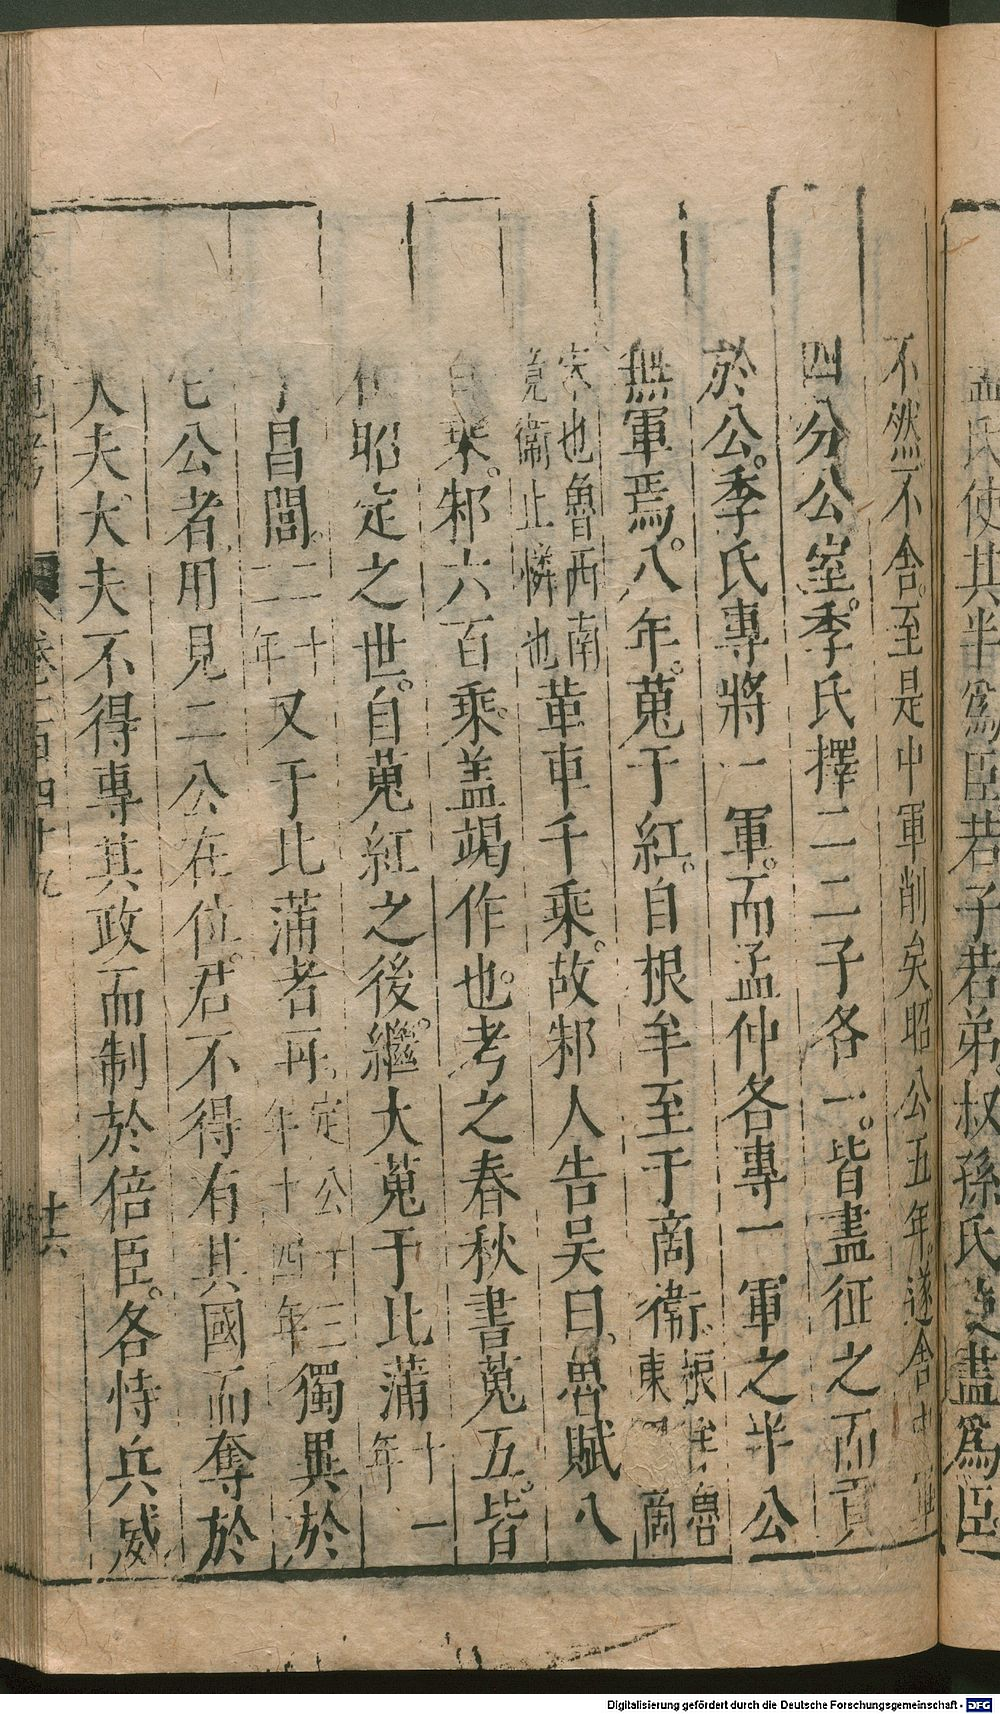 孟氏使其半爲臣若子若弟叔孫氏盡爲臣
不然不舍至是中軍削矣昭公五年遂舍中軍
四分公室季氏擇二二子各一皆盡征之而貢
於公季氏專將一軍而孟仲各專一軍之半公
無軍焉八年蒐于紅自根牟至于商衛根牟魯東商
宋也魯西南竟衛止憐也革車千乘故邾人告吴曰魯賦八
百乘邾六百乘盖竭作也考之春秋書蒐五皆
在昭定之世自蒐紅之後繼大蒐于比蒲十一年
于昌閭二十二年又于比蒲者再定公十三年十四年獨異於
它公者用見二公在位君不得有其國而奪於
大夫大夫不得專其政而制於倍臣各恃兵威
通考 卷一百四十九 十六
Digitalisierung gefördert durch die Deutsche Forschungsgemeinschaft - DFG